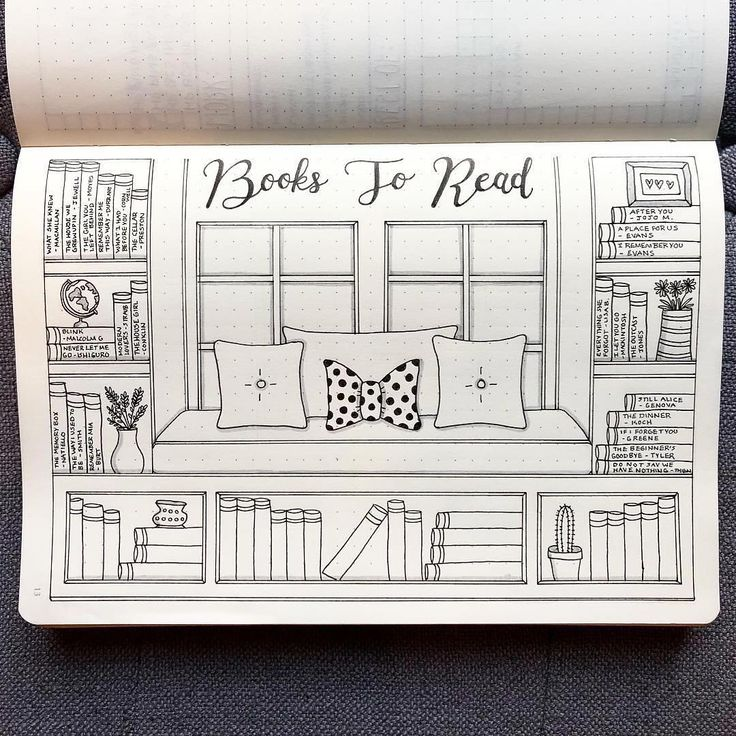 Books To Read
WHAT SHE KNEW
- MACMILLAN
THE HOUSE WE
GREW UP IN - JEWELL
THE GIRL YOU
LEFT BEHIND - MOYES
REMEMBER ME
THIS WAY - DURRANT
BEFORE YOU
THE CELLAR
- PRESTON
BLINK
- MALCOLM G
NEVER LET ME
GO - ISHIGURO
MODERN
LOVERS - STRAUB
THE HOUSE GIRL
- CONKLIN
THE MEMORY BOX
- NATIELLO
THE WAY I USED TO
BE - SMITH
REMEMBER MIA
- BURT
AFTER YOU
- JOJO M.
A PLACE FOR US
- EVANS
I REMEMBER YOU
- EVANS
EVERYTHING SHE
FORGOT - LISA B.
I LET YOU GO
- MACKINTOSH
THE OUTCAST
- JONES
STILL ALICE
- GENOVA
THE DINNER
- KOCH
IF I FORGET YOU
- GREENE
THE BEGINNER'S
GOODBYE - TYLER
DO NOT SAY WE
HAVE NOTHING - THIEN
13